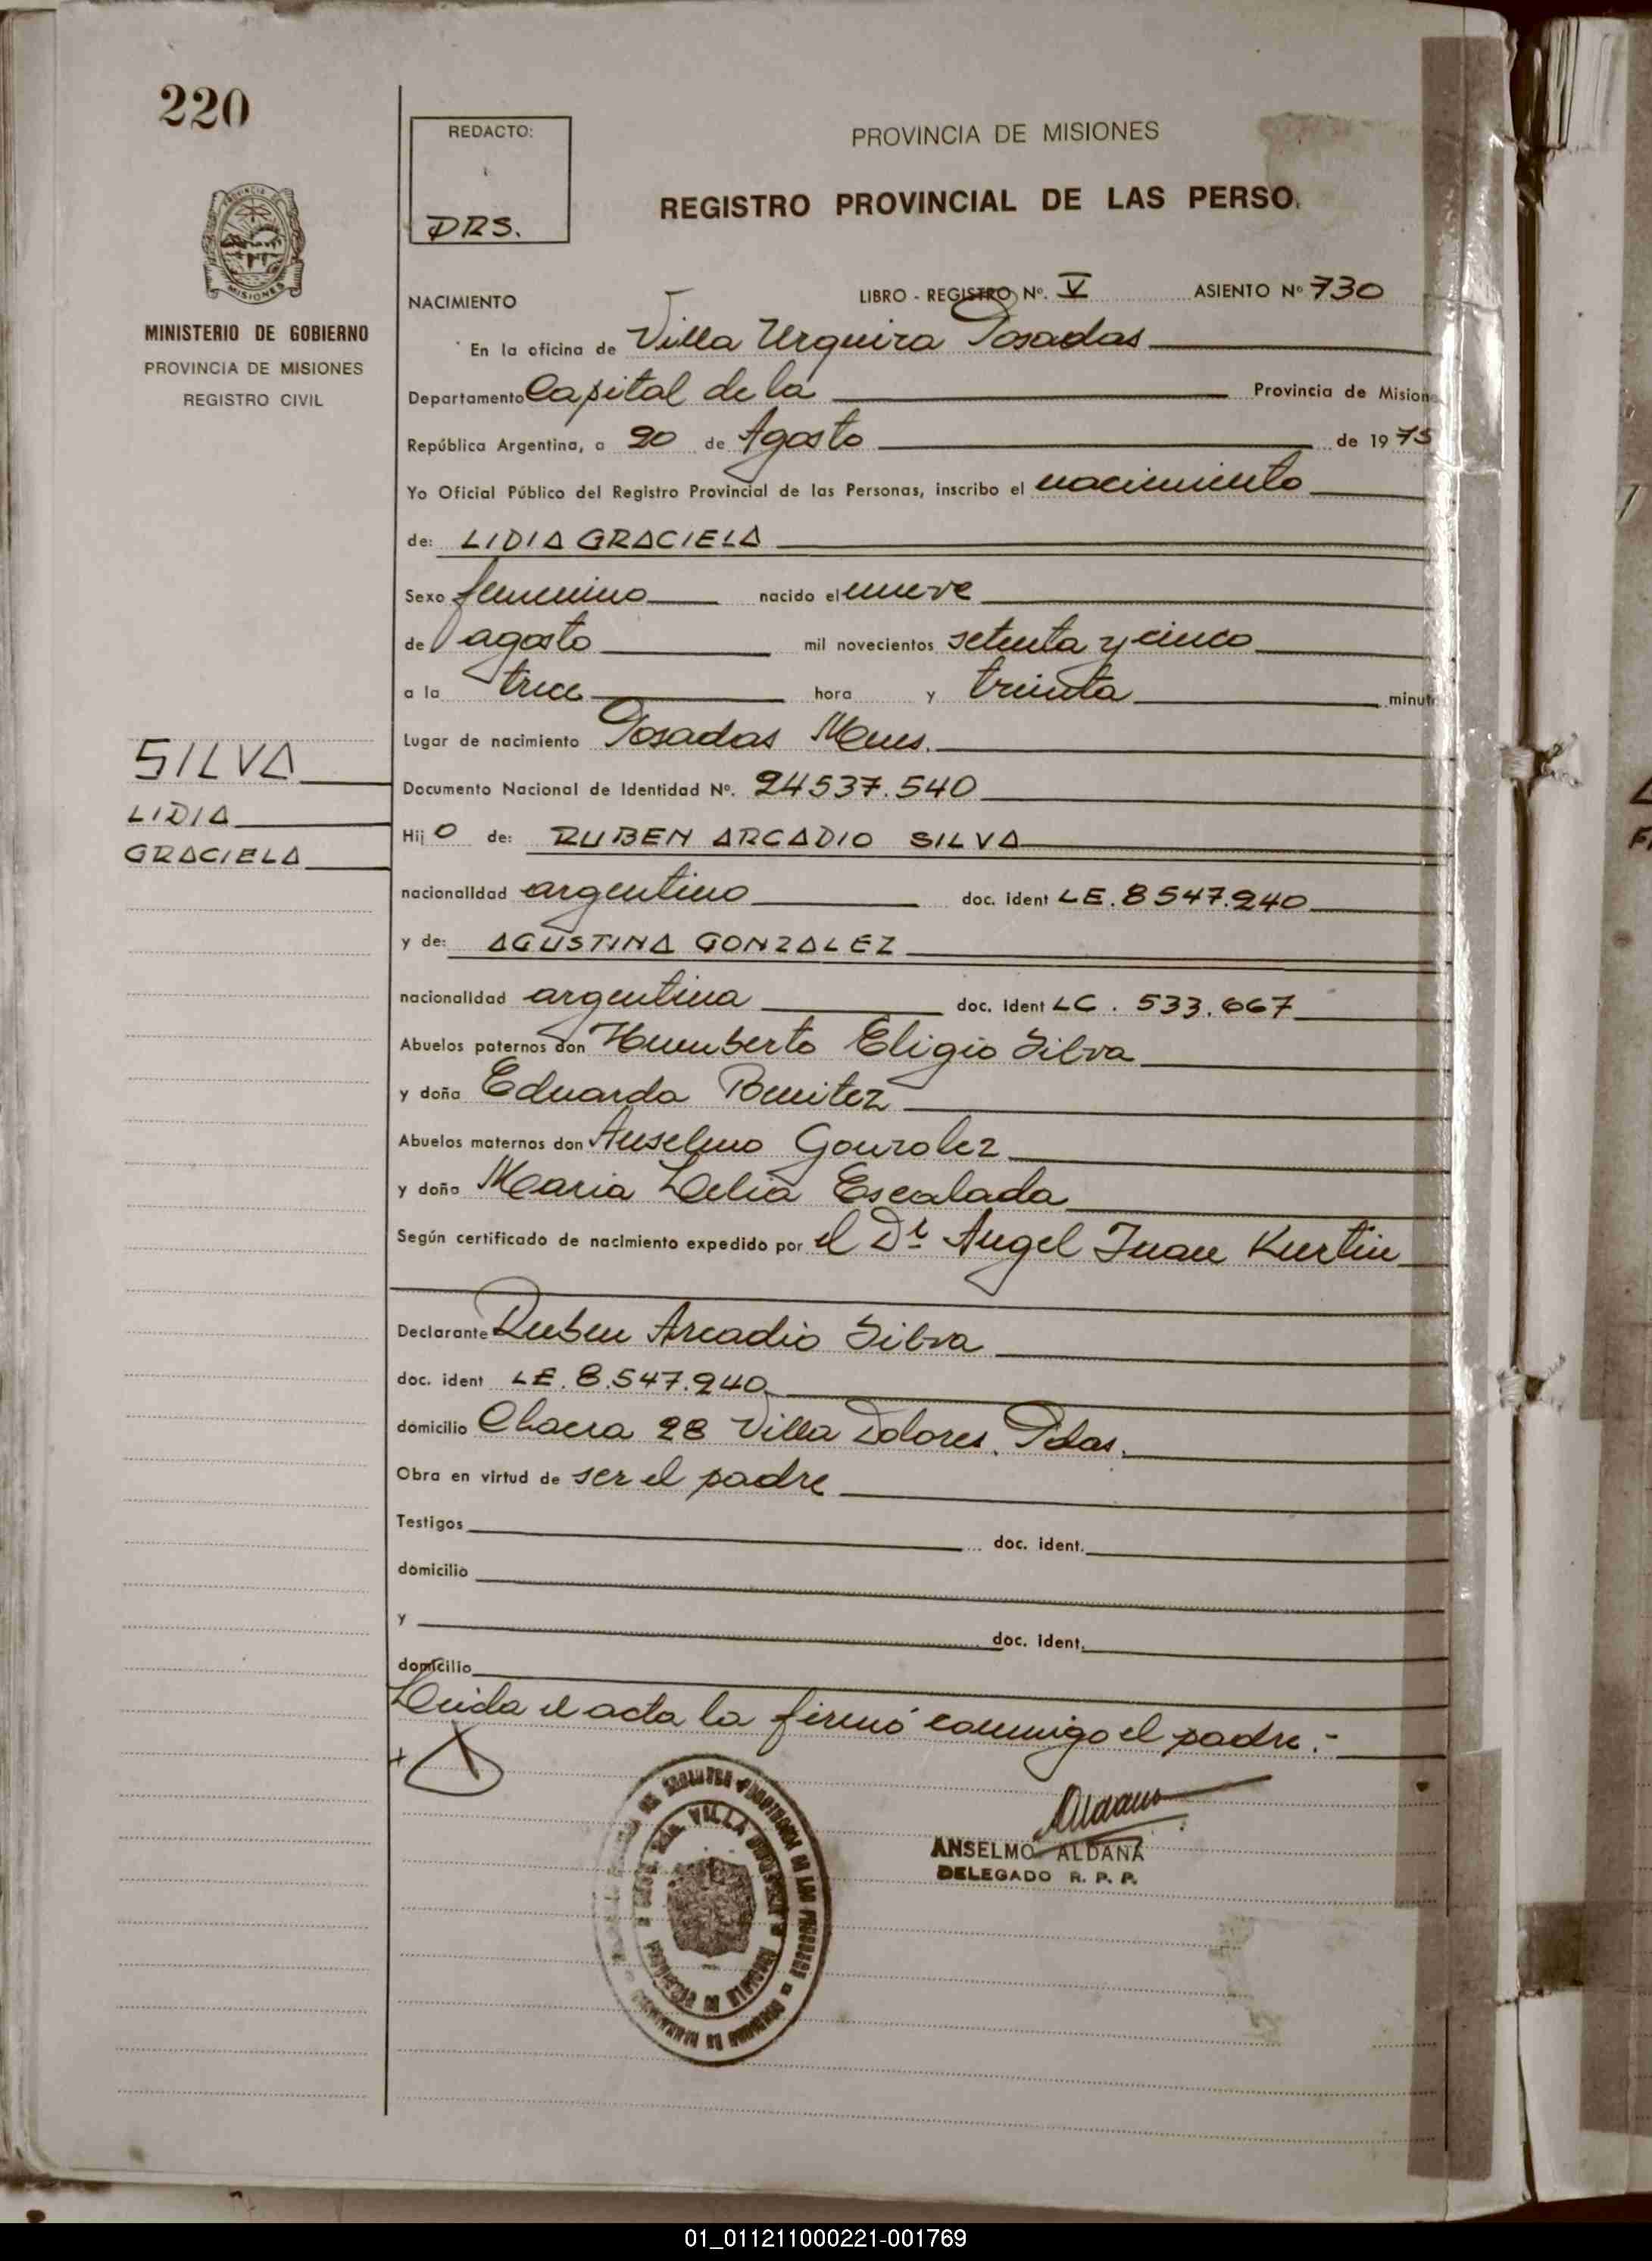 220
REDACTO:
DRS.
PROVINCIA DE MISIONES
REGISTRO PROVINCIAL DE LAS PERSO
MISIONES
MINISTERIO DE GOBIERNO
PROVINCIA DE MISIONES
REGISTRO CIVIL
NACIMIENTO LIBRO - REGISTRO Nº. V ASIENTO Nº 730
En la oficina de Villa Urquiza Posadas
Departamento Capital de la Provincia de Mision
República Argentina, a 20 de Agosto de 1975
Yo Oficial Público del Registro Provincial de las Personas, inscribo el nacimiento
de: LIDIA GRACIELA
Sexo femenino nacido el nueve
de agosto mil novecientos setenta y cinco
a la trece hora y treinta minut
Lugar de nacimiento Posadas Mnes.
SILVA
LIDIA
GRACIELA
Documento Nacional de Identidad Nº. 24537.540
Hij o de: RUBEN ARCADIO SILVA
nacionalidad argentino doc. ident LE. 8547.240
y de: AGUSTINA GONZALEZ
nacionalidad argentina doc. ident LC . 533.667
Abuelos paternos don Humberto Eligio Silva
y doña Eduarda Benitez
Abuelos maternos don Anselmo Gonzalez
y doña Maria Delia Escalada
Según certificado de nacimiento expedido por el Dr Angel Juan Kurtin
Declarante Ruben Arcadio Silva
doc. ident LE. 8.547.240
domicilio Chacra 28 Villa Dolores. Pdas.
Obra en virtud de ser el padre
Testigos doc. ident.
domicilio
y doc. ident.
domicilio
Leida el acta la firmó conmigo el padre.-
ANSELMO ALDANA
DELEGADO R. P. P.
VILLA URQUIZA
01_011211000221-001769